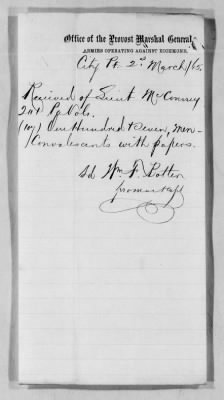 Office of the Provost Marshal General,
ARMIES OPERATING AGAINST RICHMOND,
City Pt. 2d March/65.
Received of Lieut McConney
211 Pa Vols.
(107) One Hundred & Seven, Men
Convalescents with papers.
Sd Wm F. Potter